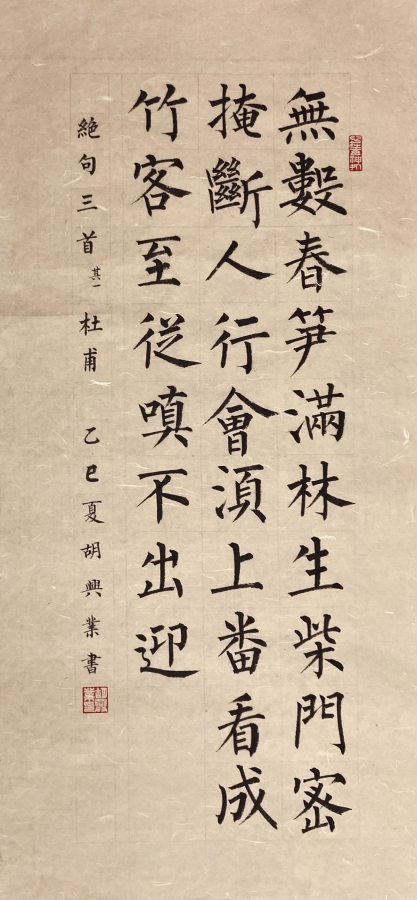 無數春笋滿林生柴門密
掩斷人行會湏上番看成
竹客至從嗔不出迎
絕句三首其一 杜甫 乙巳夏胡興業書